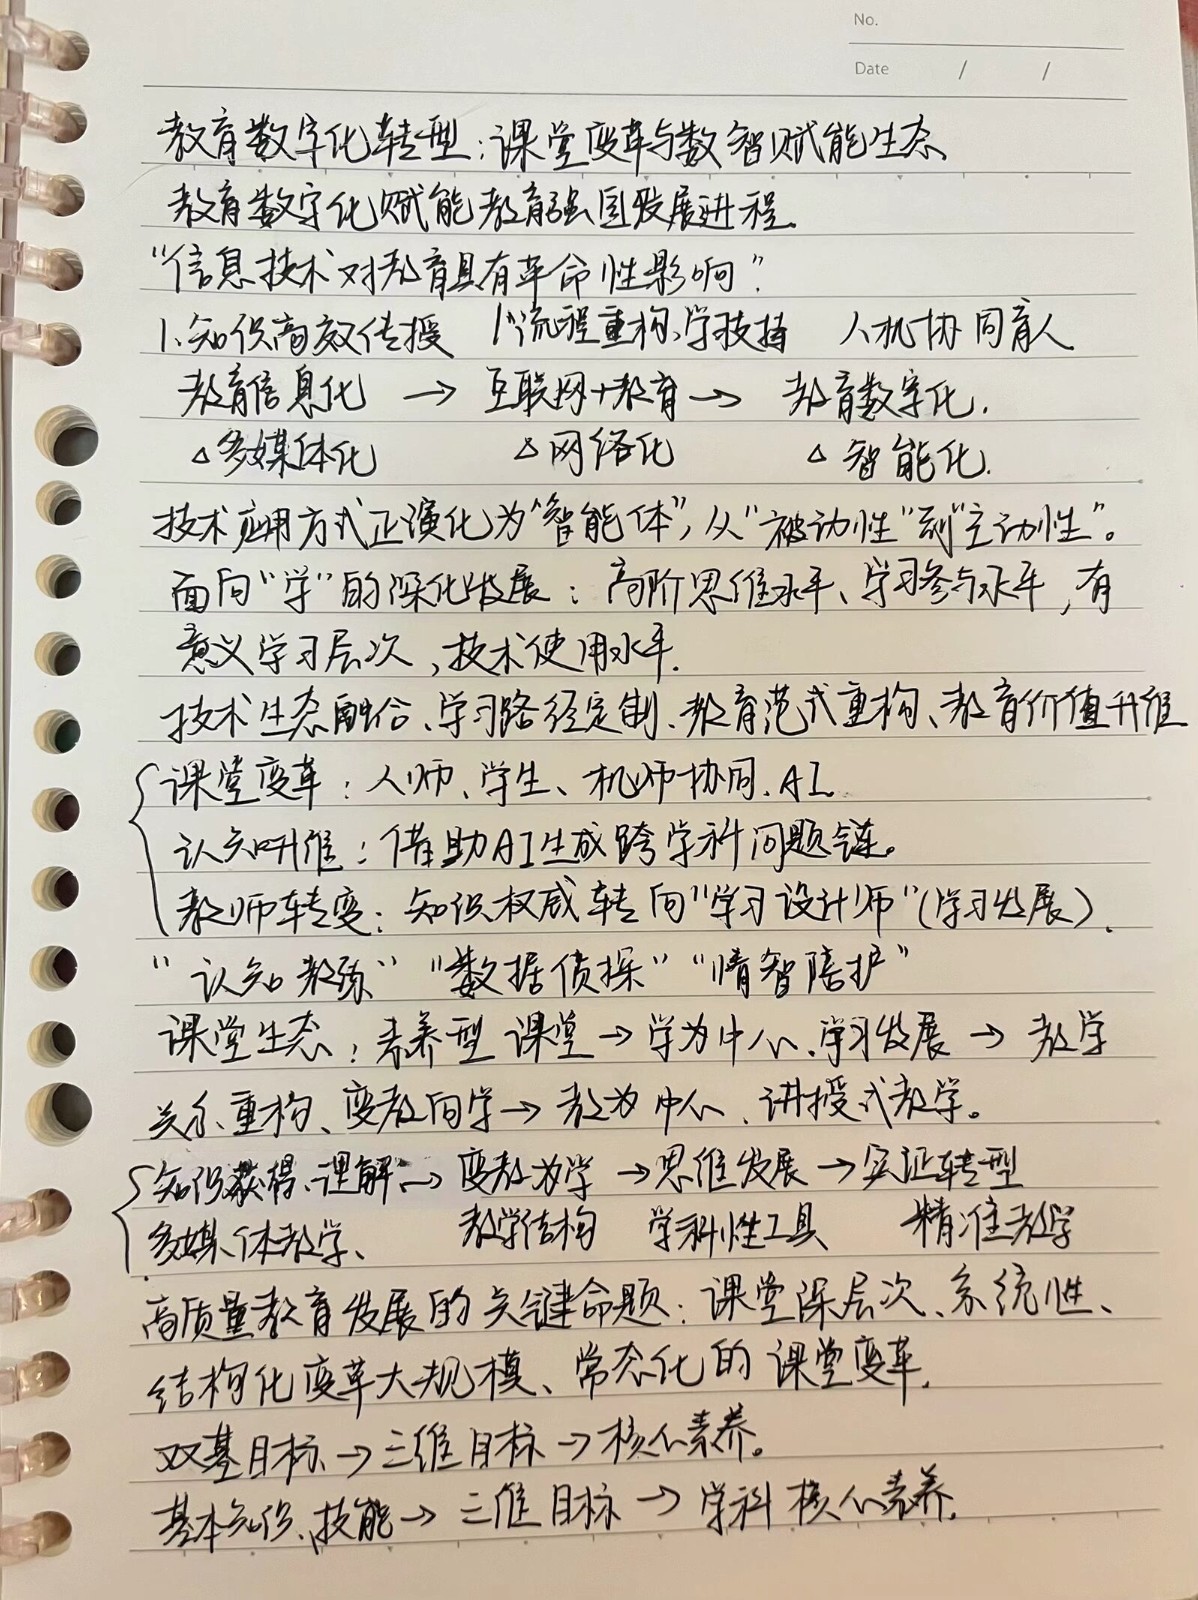 No.
Date / /
教育数字化转型:课堂变革与数智赋能生态
教育数字化赋能教育强国发展进程.
“信息技术对教育具有革命性影响”
1.知识高效传授 流程重构、学技 人机协同育人
教育信息化 → 互联网+教育 → 教育数字化.
△多媒体化 △网络化 △智能化.
技术应用方式正演化为“智能体”,从“被动性”到“主动性”。
面向“学”的深化发展:高阶思维水平、学习参与水平,有
意义学习层次,技术使用水平.
技术生态融合、学习路径定制、教育范式重构、教育价值升维
课堂变革:人师、学生、机师协同.AI
认知升维:借助AI生成跨学科问题链。
教师转变:知识权威转向“学习设计师”(学习发展).
“认知教练”“数据侦探”“情智陪护”
课堂生态:素养型课堂→学为中心、学习发展→教学
关系重构、变教向学→教为中心、讲授式教学。
知识获得、理解→变教为学→思维发展→实证转型
多媒体教学、 教学结构 学科性工具 精准教学
高质量教育发展的关键命题:课堂深层次、系统性、
结构化变革大规模、常态化的课堂变革.
双基目标→三维目标→核心素养。
基本知识、技能→三维目标→学科核心素养.